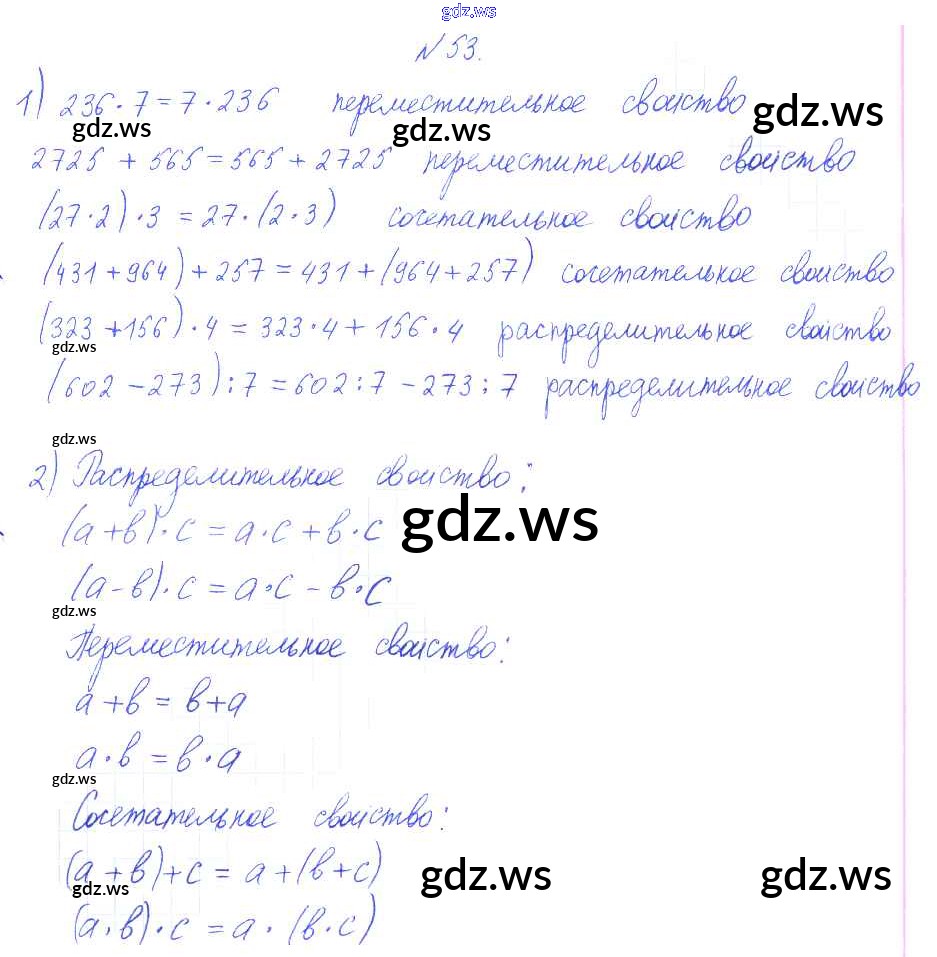 gdz.ws
N 53.
1) 236 · 7 = 7 · 236 переместительное свойство
gdz.ws gdz.ws gdz.ws
2725 + 565 = 565 + 2725 переместительное свойство
(27 · 2) · 3 = 27 · (2 · 3) сочетательное свойство
(431 + 964) + 257 = 431 + (964 + 257) сочетательное свойство
(323 + 156) · 4 = 323 · 4 + 156 · 4 распределительное свойство
gdz.ws
(602 - 273) : 7 = 602 : 7 - 273 : 7 распределительное свойство
gdz.ws
2) Распределительное свойство:
(а + в) · с = а · с + в · с gdz.ws
(а - в) · с = а · с - в · с
gdz.ws
Переместительное свойство:
а + в = в + а
а · в = в · а
gdz.ws
Сочетательное свойство:
(а + в) + с = а + (в + с) gdz.ws gdz.ws
gdz.ws
(а · в) · с = а · (в · с)